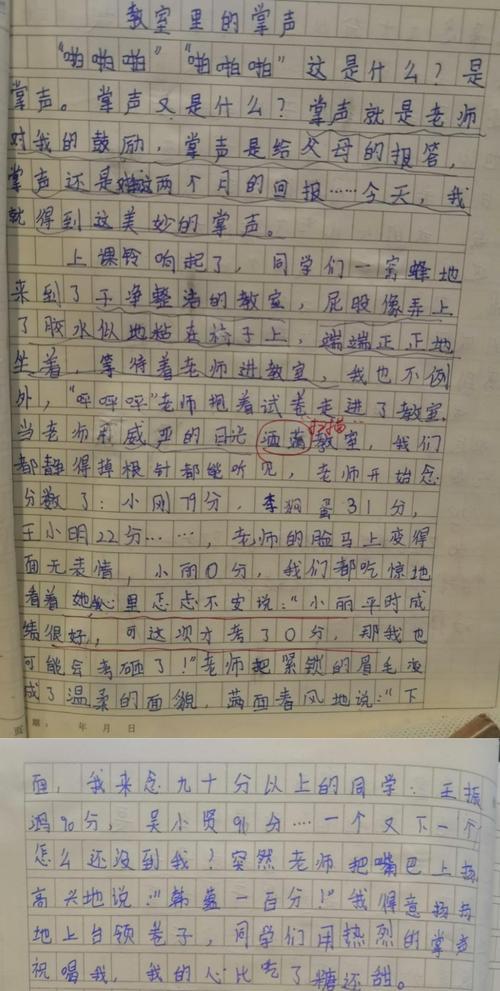 教室里的掌声
“啪啪啪”“啪啪啪”这是什么？是
掌声。掌声又是什么？掌声就是老师
对我的鼓励，掌声是给父母的报答，
掌声还是这两个月的回报……今天，我
就得到这美妙的掌声。
上课铃响起了，同学们一窝蜂地
来到了干净整洁的教室，屁股像弄上
了胶水似地粘在椅子上，端端正正地
坐着，等待着老师进教室，我也不例
外，“呯呯呯”老师抱着试卷走进了教室.
扫描
当老师用威严的目光洒满教室，我们
都静得掉根针都能听见，老师开始念
分数了：小刚79分，李狗蛋31分，
王小明22分……，老师的脸马上变得
面无表情，小丽0分，我们都吃惊地
看着她心里忐忑不安说：“小丽平时成
绩很好，可这次才考了0分，那我也
可能会考砸了！”老师把紧锁的眉毛变
成了温柔的面貌，满面春风地说：“下
期： 年 月 日
面，我来念九十分以上的同学：王振
鸿90分，吴小贤91分……一个又下一个
怎么还没到我？突然老师把嘴巴上扬
高兴地说：“韩蓝一百分！”我得意扬扬
地上台领卷子，同学们用热烈的掌声
祝唱我，我的心比吃了糖还甜。